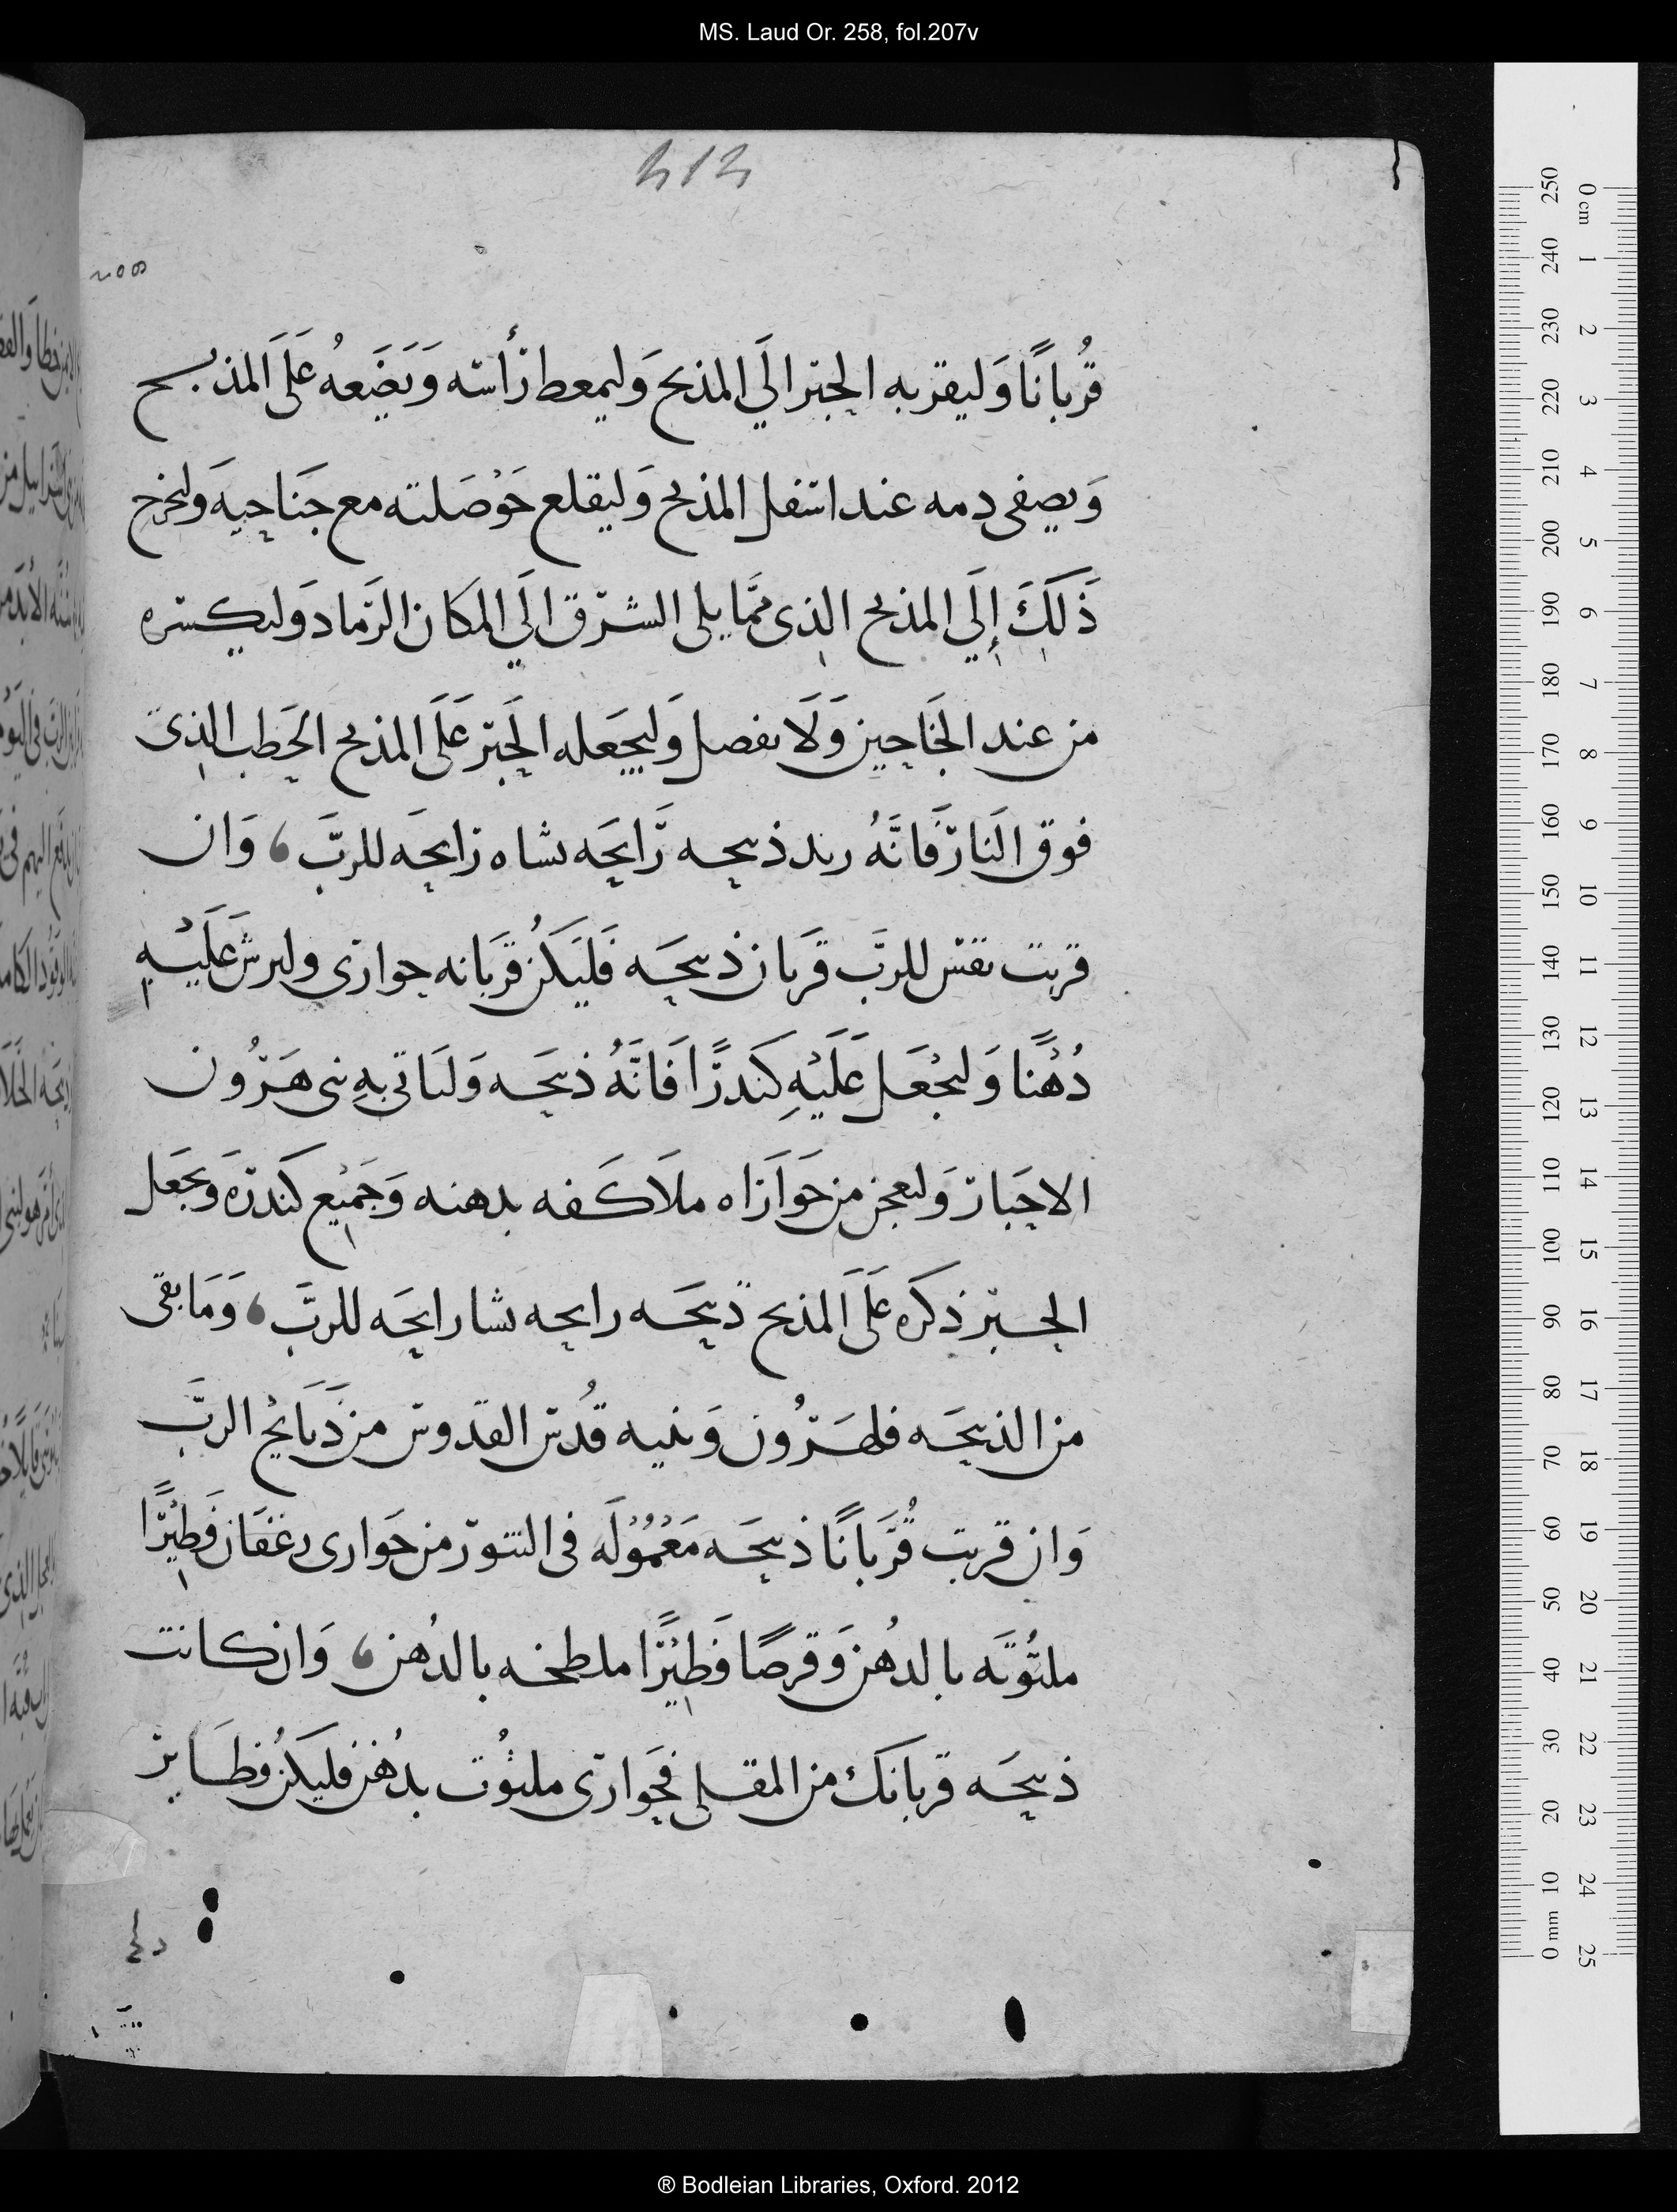 MS. Laud Or. 258, fol.207v
قُربانًا وَليقربه الحبر الَي المذبح وَليمعط رَأسه وَيَضَعهُ عَلَى المذبح
وَيصفى دمه عند اسفل المذبح وَليقلع حَوْصَلته مع جَناحيه وليخرج
ذَلِكَ إِلَي المذبح الذِى ممَّا يلى الشرق الَي المكان الرَماد وَليكسره
من عند الجَناحين وَلَا يفصل وَليجَعله الحَبر عَلَى المذبح الحَطب الذِى
فوق النَار فَانَّهُ ذبيحه رَايحَه نشاه رَايحَه للربَّ، وَان
قربت نفس للربَّ قربَان ذبيحَه فَليَكُن قربَانه حوارى وليرش عَلَيْهِ
دُهْنًا وَليجْعَل عَلَيْهِ كَندرًا فَانَّهُ ذبيحَه وَليَاتى بهِ بنى هَرُون
الاحبَار وَليعجن من حَوَارَاه ملَا كَفه بدهنه وَجَميْع كَندرَه وَيجَعل
الحبر ذكره عَلَى المذبح ذبيحَه رايحه نشا رايحَه للربَّ، وَمَا بقى
من الذبيحَه فلهَرُون وَبنيه قُدس القدوس من ذَبَايْح الربَّ
وَان قربت قُربَانًا ذبيحَه مَعْمُوْلَه فى التنور من حَوارى رغفَان فَطِيْرًا
ملتُوتَه بالدهُن وَقرصًا فَطِيْرًا ملطخه بالدُهن، وَان كانت
ذبيحَه قربانك من المقلى فحَوارى ملتوُت بدُهن فليَكُن فطَاير
0 cm 1 2 3 4 5 6 7 8 9 10 11 12 13 14 15 16 17 18 19 20 21 22 23 24 25
250 240 230 220 210 200 190 180 170 160 150 140 130 120 110 100 90 80 70 60 50 40 30 20 10 0 mm
® Bodleian Libraries, Oxford. 2012